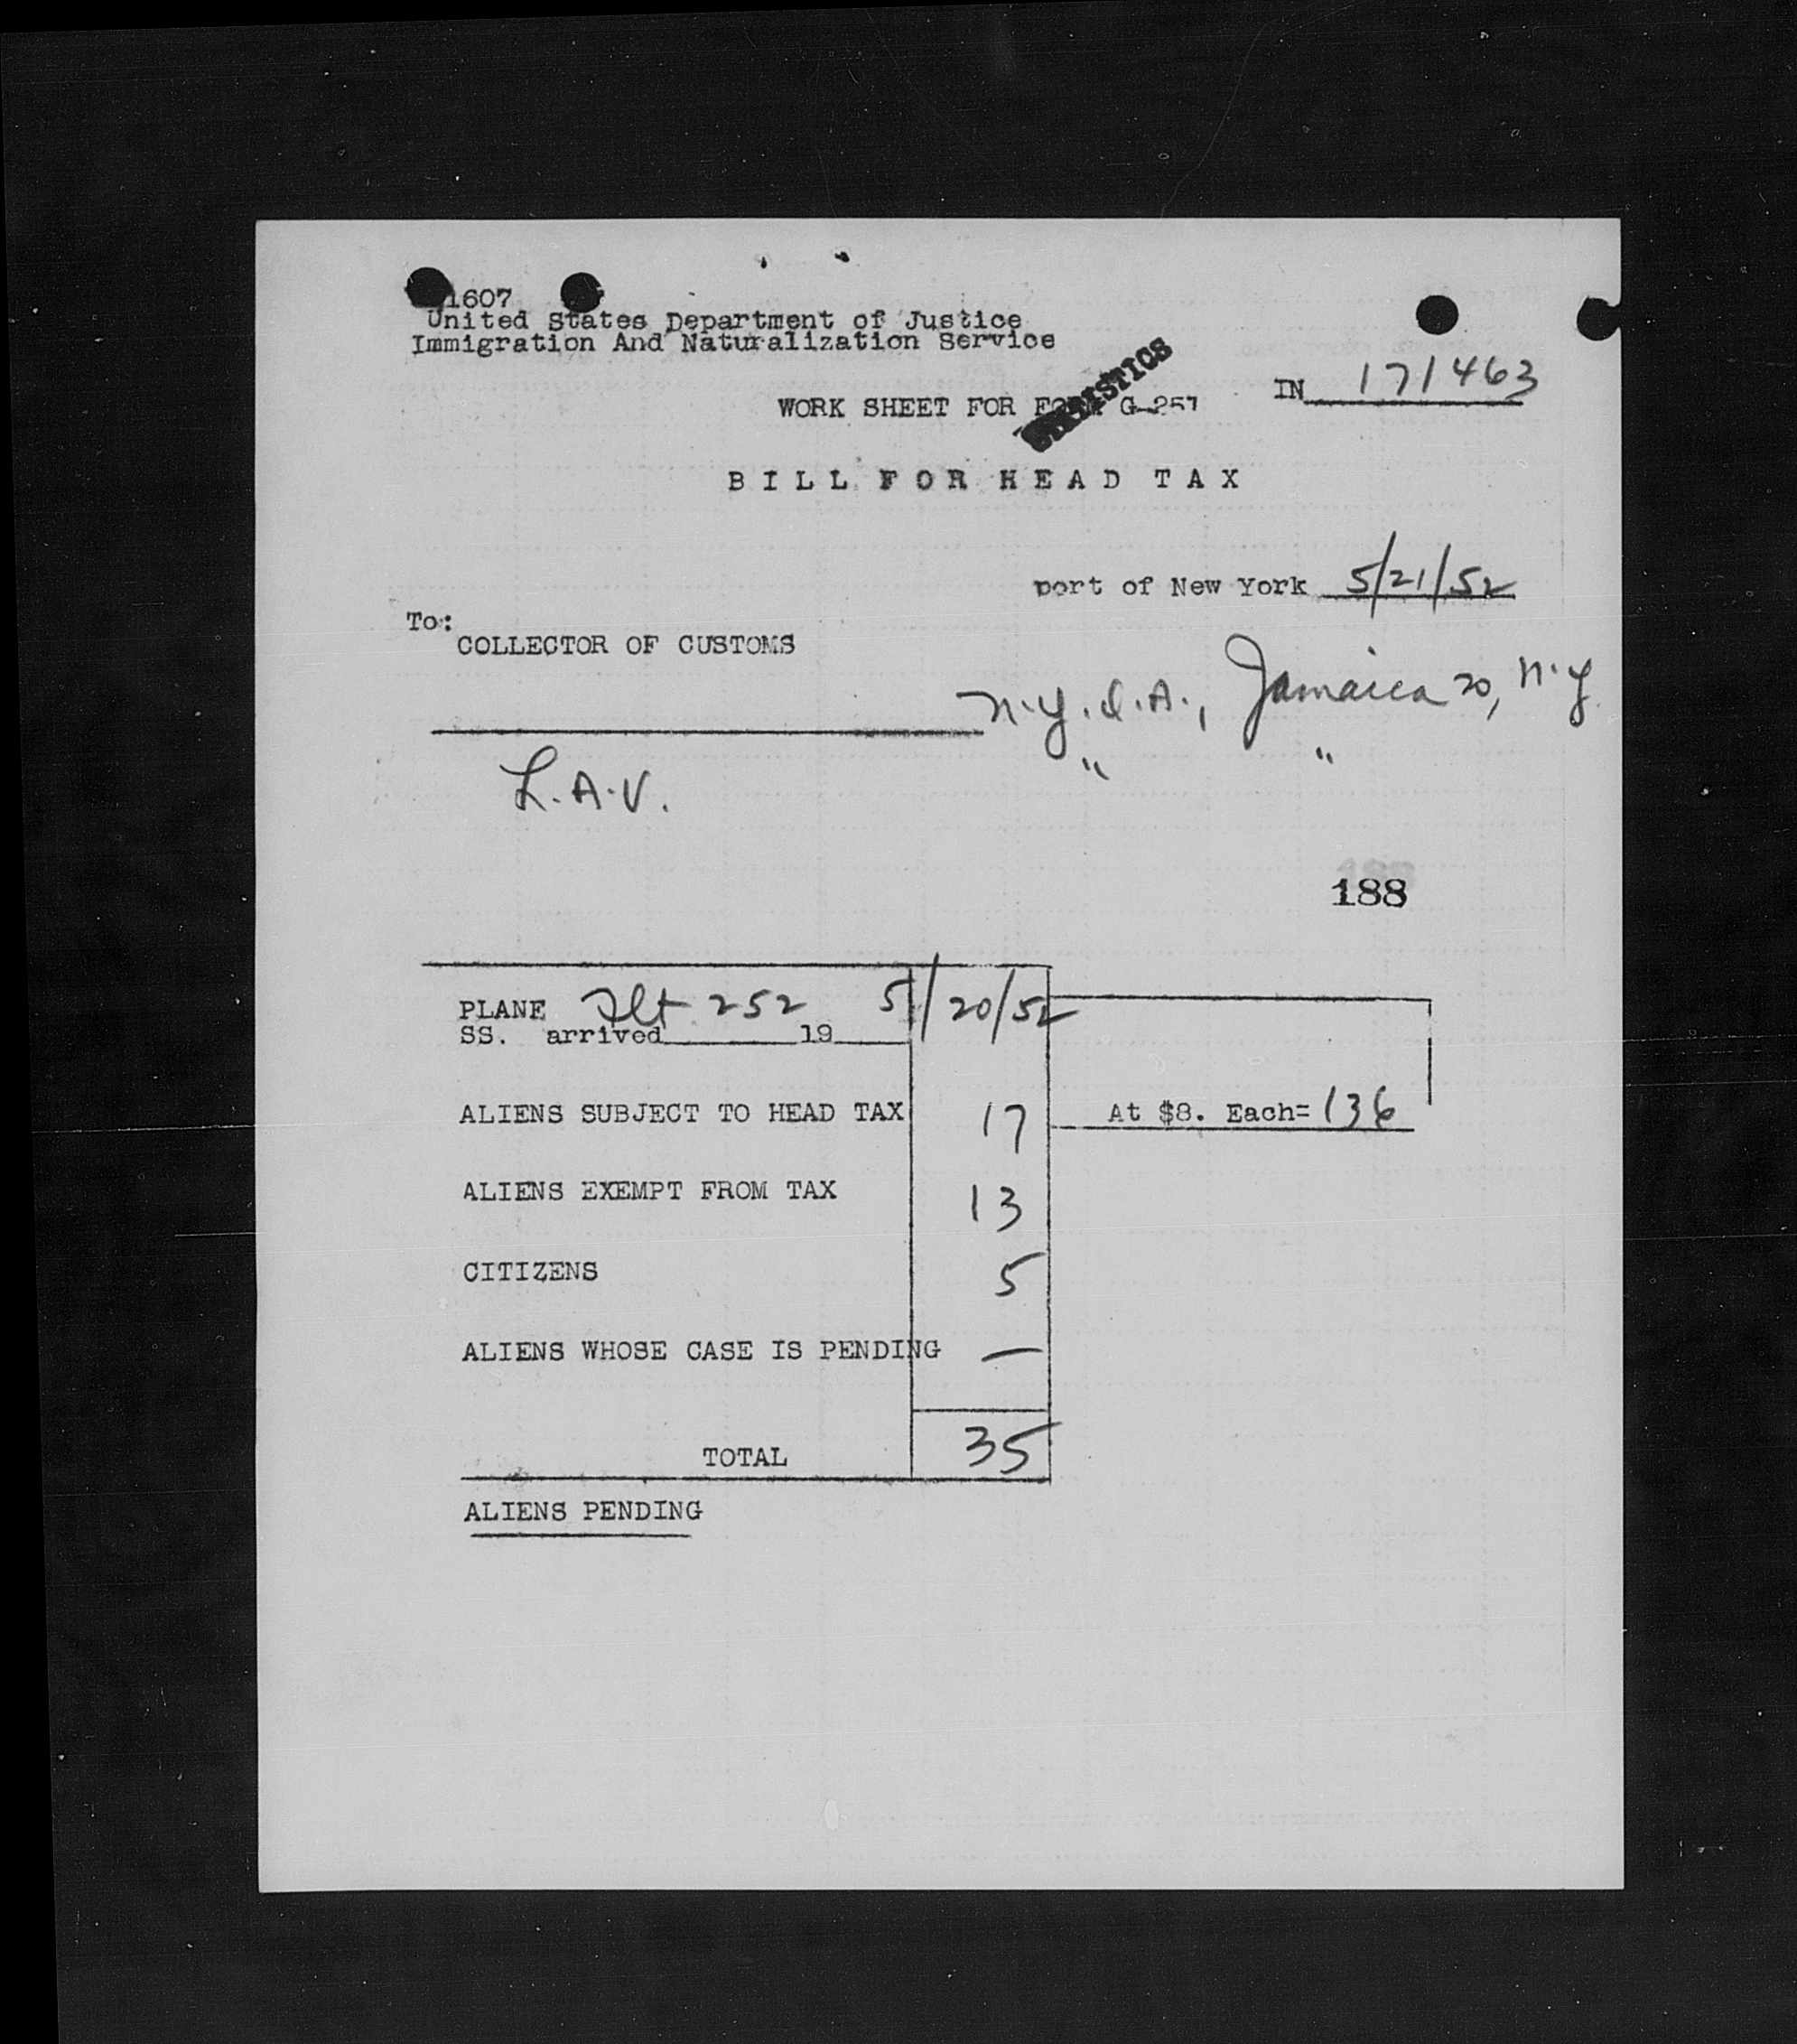 1607
United States Department of Justice
Immigration And Naturalization Service
STATISTICS
IN 171463
WORK SHEET FOR FORM G-257
BILL FOR HEAD TAX
port of New York 5/21/52
To:
COLLECTOR OF CUSTOMS
N.Y.I.A., Jamaica 20, N.Y.
" "
L.A.V.
188
PLANE Flt 252 5/20/52
SS. arrived 19
ALIENS SUBJECT TO HEAD TAX 17 At $8. Each= 136
ALIENS EXEMPT FROM TAX 13
CITIZENS 5
ALIENS WHOSE CASE IS PENDING —
TOTAL 35
ALIENS PENDING